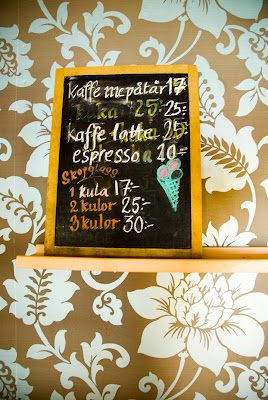 Kaffe m. påtår 17
kaka 25:-
kaffe latte 25
espresso 20:-
Skopglass
1 kula 17-
2 kulor 25:-
3 kulor 30:-